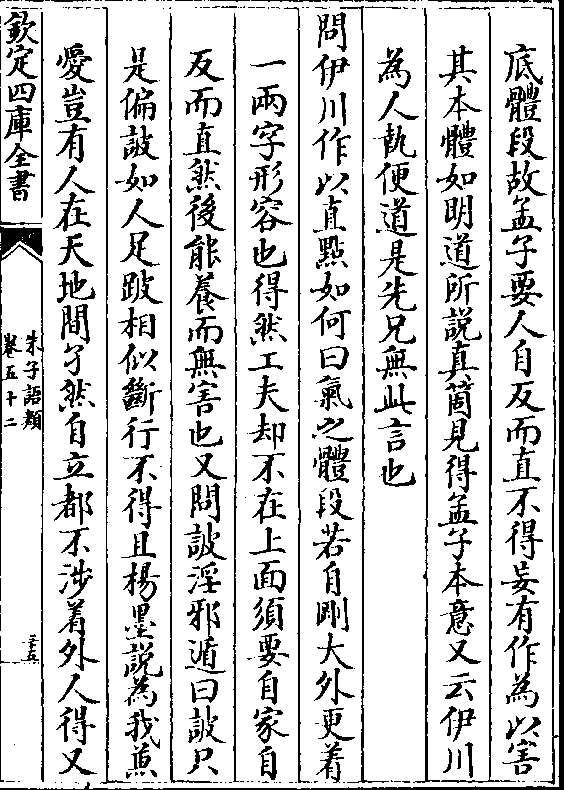 底體段故孟子要人自反而直不得妄有作為以害
其本體如明道所說真箇見得孟子本意又云伊川
為人執便道是先兄無此言也
問伊川作以直點如何曰氣之體段若自剛大外更着
一兩字形容也得然工夫却不在上面須要自家自
反而直然後能養而無害也又問詖淫邪遁曰詖只
是偏詖如人足跛相似斷行不得且楊墨說為我兼
愛豈有人在天地間孑然自立都不涉着外人得又
欽定四庫全書
朱子語類
卷五十二
三十五